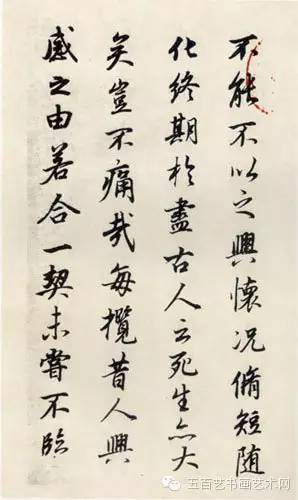 不能不以之興懷況脩短随
化終期於盡古人云死生亦大
矣豈不痛哉每攬昔人興
感之由若合一契未嘗不臨
五百艺书画艺术网